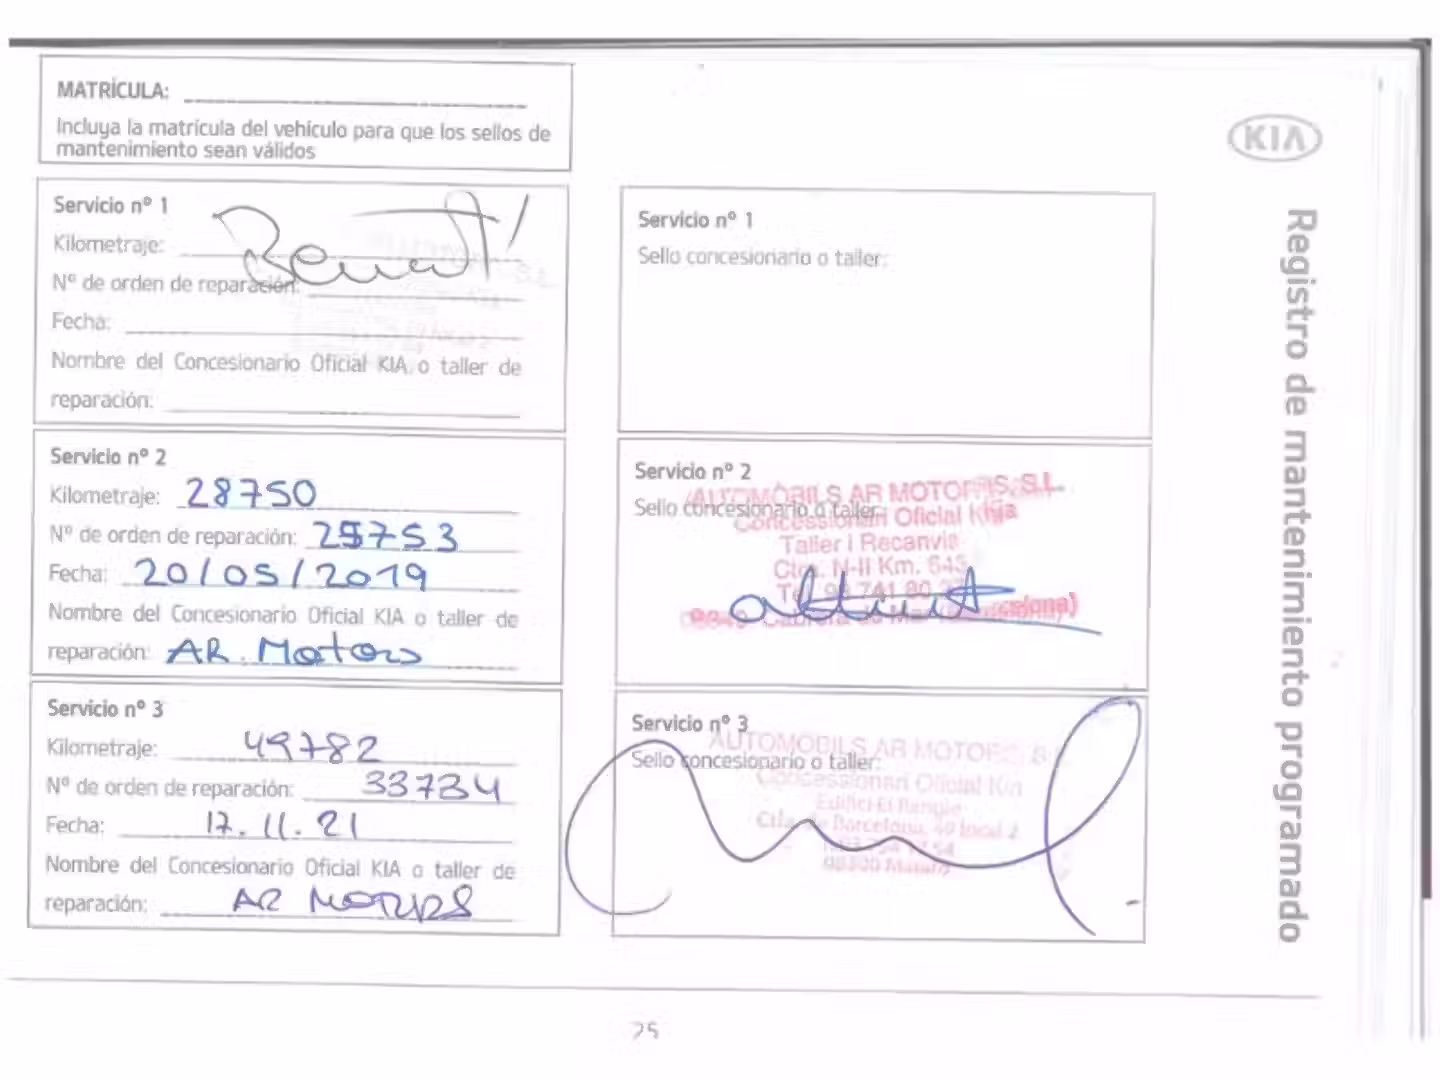 MATRÍCULA:
Incluya la matrícula del vehículo para que los sellos de
mantenimiento sean válidos
KIA
Registro de mantenimiento programado
Servicio nº 1
Kilometraje:
Nº de orden de reparación:
Fecha:
Nombre del Concesionario Oficial KIA o taller de
reparación:
Servicio nº 1
Sello concesionario o taller:
Servicio nº 2
Kilometraje: 28750
Nº de orden de reparación: 25753
Fecha: 20/05/2019
Nombre del Concesionario Oficial KIA o taller de
reparación: AR. Motors
Servicio nº 2
Sello concesionario o taller:
AUTOMÒBILS AR MOTORS, S.L.
Concessionari Oficial Kia
Taller i Recanvis
N-II Km.
741 80
Cabrera de Mar
Servicio nº 3
Kilometraje: 49782
Nº de orden de reparación: 33734
Fecha: 17.11.21
Nombre del Concesionario Oficial KIA o taller de
reparación: AR MOTORS
Servicio nº 3
Sello concesionario o taller:
AUTOMÒBILS AR MOTORS, S.L.
Concessionari Oficial Kia
Edifici El Rengle
Barcelona, local 2
Mataró
25